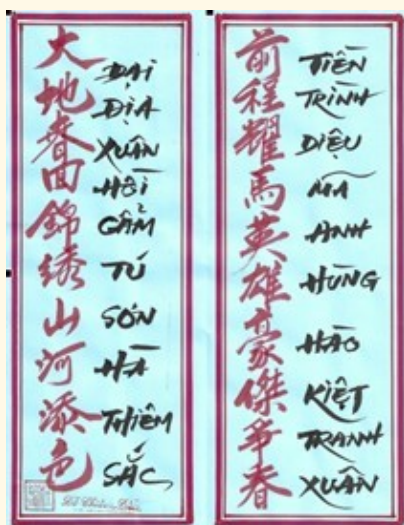 大地春回錦綉山河添色
ĐẠI
ĐỊA
XUÂN
HỒI
CẨM
TÚ
SƠN
HÀ
THIÊM
SẮC
前程耀馬英雄豪傑爭春
TIỀN
TRÌNH
DIỆU
MÃ
ANH
HÙNG
HÀO
KIỆT
TRANH
XUÂN